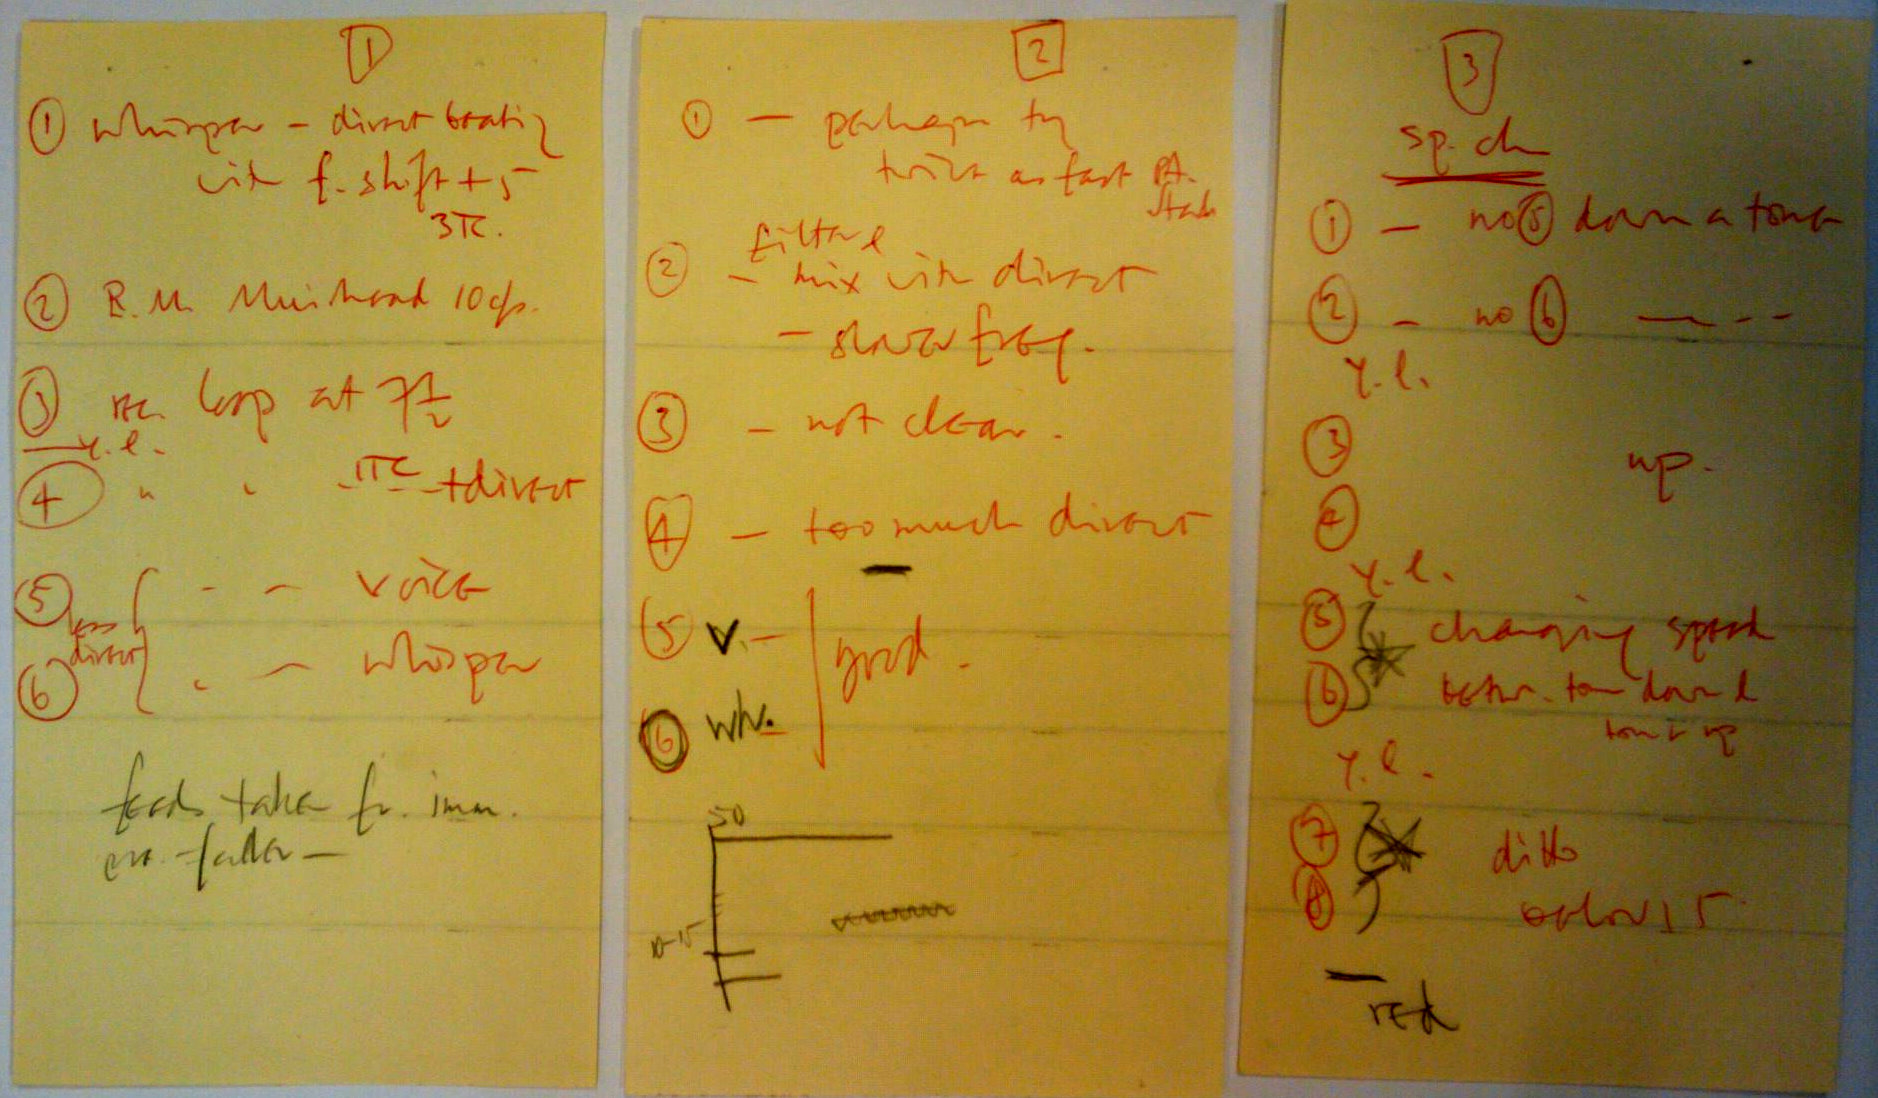 1
① whisper - direct beating
with f. shift + 5
3TC.
② R.M. Muirhead 10 c/s.
③ rec. loop at 7½
y.l.
④ " " 1TC + direct
⑤ - - voice
less direct
⑥ - whisper
feeds taken fr. imm.
fader -
2
① - perhaps try
twice as fast PA.
② - filter &
mix with direct
- slower freq.
③ - not clear.
④ - too much direct
⑤ v. -
good.
⑥ wh.
50
10-15
3
sp. ch
① - no ⑤ down a tone
② - no ⑥ - - -
y.l.
③ up.
④
y.l.
⑤ changing speed
⑥ betw. tone down &
tone up
y.l.
⑦ ditto
⑧ below 15
red